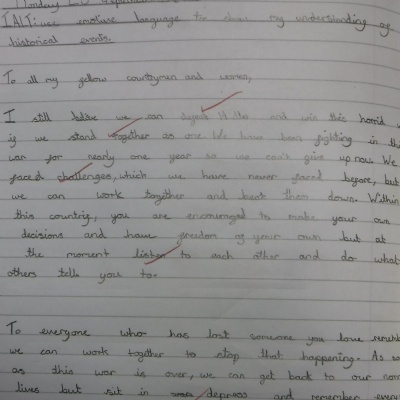 Monday
TALT: use emotive language to show my understanding of
historical events.
To all my fellow countrymen and women,
I still belive we can defeat Hitler and win this horrid
if we stand together as one. We have been fighting in the
war for nearly one year so we can't give up now. We
faced challenges, which we have never faced before, but
we can work together and beat them down. Within
this country, you are encouraged to make your own
decisions and have freedom of your own but at
the moment listen to each other and do what
others tells you to.
To everyone who has lost someone you love
we can work together to stop that happening. As so
as this war is over, we can get back to our
lives but sit in depress and remember